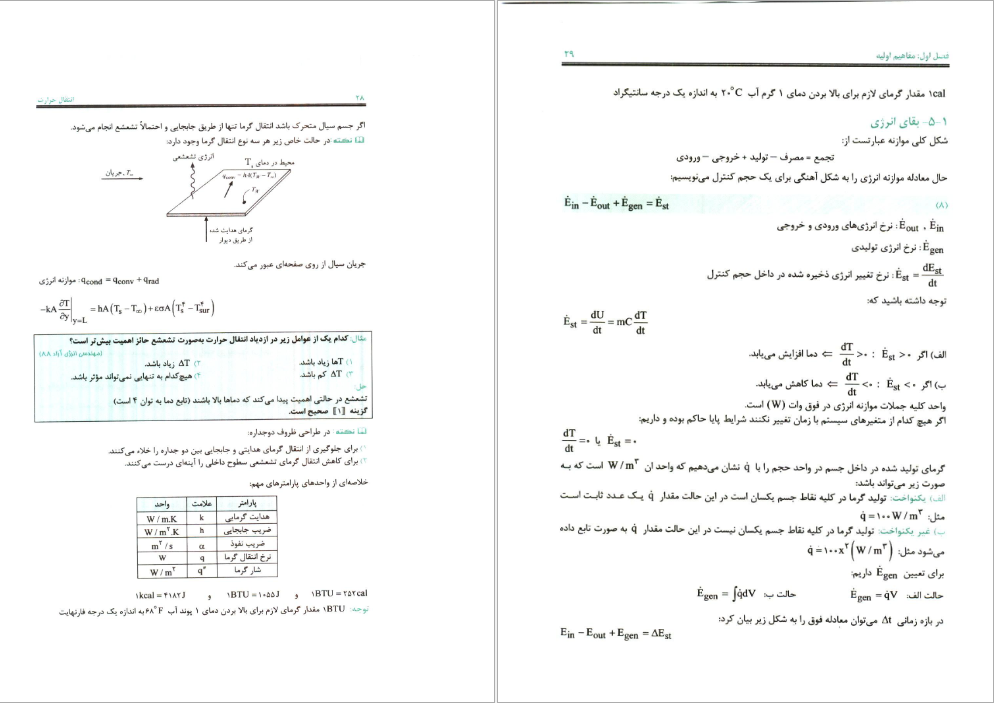 ۲۸ انتقال حرارت
اگر جسم سیال متحرک باشد انتقال گرما تنها از طریق جابجایی و احتمالاً تشعشع انجام می‌شود.
نکته: در حالت خاص زیر هر سه نوع انتقال گرما وجود دارد:
انرژی تشعشعی
محیط در دمای Ts
جریان، T∞
qconv = hA(Ts − T∞)
Ts
گرمای هدایت شده
از طریق دیوار
جریان سیال از روی صفحه‌ای عبور می‌کند.
موازنه انرژی: qcond = qconv + qrad
−kA ∂T/∂y|y=L = hA(Ts − T∞) + εσA(Ts⁴ − Tsur⁴)
مثال: کدام یک از عوامل زیر در ازدیاد انتقال حرارت به‌صورت تشعشع حائز اهمیت بیش‌تر است؟
(مهندسی انرژی آزاد ۸۸)
۱) Tها زیاد باشد. ۲) ΔT زیاد باشد.
۳) ΔT کم باشد. ۴) هیچ‌کدام به تنهایی نمی‌تواند مؤثر باشد.
حل:
تشعشع در حالتی اهمیت پیدا می‌کند که دماها بالا باشند (تابع دما به توان ۴ است)
گزینه [۱] صحیح است.
نکته: در طراحی ظروف دوجداره:
۱) برای جلوگیری از انتقال گرمای هدایتی و جابجایی بین دو جداره را خلاء می‌کنند.
۲) برای کاهش انتقال گرمای تشعشعی سطوح داخلی را آینه‌ای درست می‌کنند.
خلاصه‌ای از واحدهای پارامترهای مهم:
پارامتر علامت واحد
هدایت گرمایی k W/m.K
ضریب جابجایی h W/m².K
ضریب نفوذ α m²/s
نرخ انتقال گرما q W
شار گرما q″ W/m²
۱BTU = ۲۵۲cal و ۱BTU = ۱۰۵۵J و ۱kcal = ۴۱۸۲J
توجه: ۱BTU مقدار گرمای لازم برای بالا بردن دمای ۱ پوند آب ۶۸°F به اندازه یک درجه فارنهایت
فصل اول: مفاهیم اولیه ۲۹
۱cal مقدار گرمای لازم برای بالا بردن دمای ۱ گرم آب ۲۰°C به اندازه یک درجه سانتیگراد
۱-۵- بقای انرژی
شکل کلی موازنه عبارتست از:
تجمع = مصرف − تولید + خروجی − ورودی
حال معادله موازنه انرژی را به شکل آهنگی برای یک حجم کنترل می‌نویسیم:
Ėin − Ėout + Ėgen = Ėst (۸)
Ėin ، Ėout: نرخ انرژی‌های ورودی و خروجی
Ėgen: نرخ انرژی تولیدی
Ėst = dEst/dt: نرخ تغییر انرژی ذخیره شده در داخل حجم کنترل
توجه داشته باشید که:
Ėst = dU/dt = mC dT/dt
الف) اگر Ėst > ۰ : dT/dt > ۰ ⇐ دما افزایش می‌یابد.
ب) اگر Ėst < ۰ : dT/dt < ۰ ⇐ دما کاهش می‌یابد.
واحد کلیه جملات موازنه انرژی در فوق وات (W) است.
اگر هیچ کدام از متغیرهای سیستم با زمان تغییر نکنند شرایط پایا حاکم بوده و داریم:
Ėst = ۰ یا dT/dt = ۰
گرمای تولید شده در داخل جسم در واحد حجم را با q̇ نشان می‌دهیم که واحد ان W/m³ است که به
صورت زیر می‌تواند باشد:
الف) یکنواخت: تولید گرما در کلیه نقاط جسم یکسان است در این حالت مقدار q̇ یک عدد ثابت است
مثل: q̇ = ۱۰۰W/m³
ب) غیر یکنواخت: تولید گرما در کلیه نقاط جسم یکسان نیست در این حالت مقدار q̇ به صورت تابع داده
می‌شود مثل: q̇ = ۱۰۰x²(W/m³)
برای تعیین Ėgen داریم:
حالت الف: Ėgen = q̇V حالت ب: Ėgen = ∫q̇dV
در بازه زمانی Δt می‌توان معادله فوق را به شکل زیر بیان کرد:
Ein − Eout + Egen = ΔEst